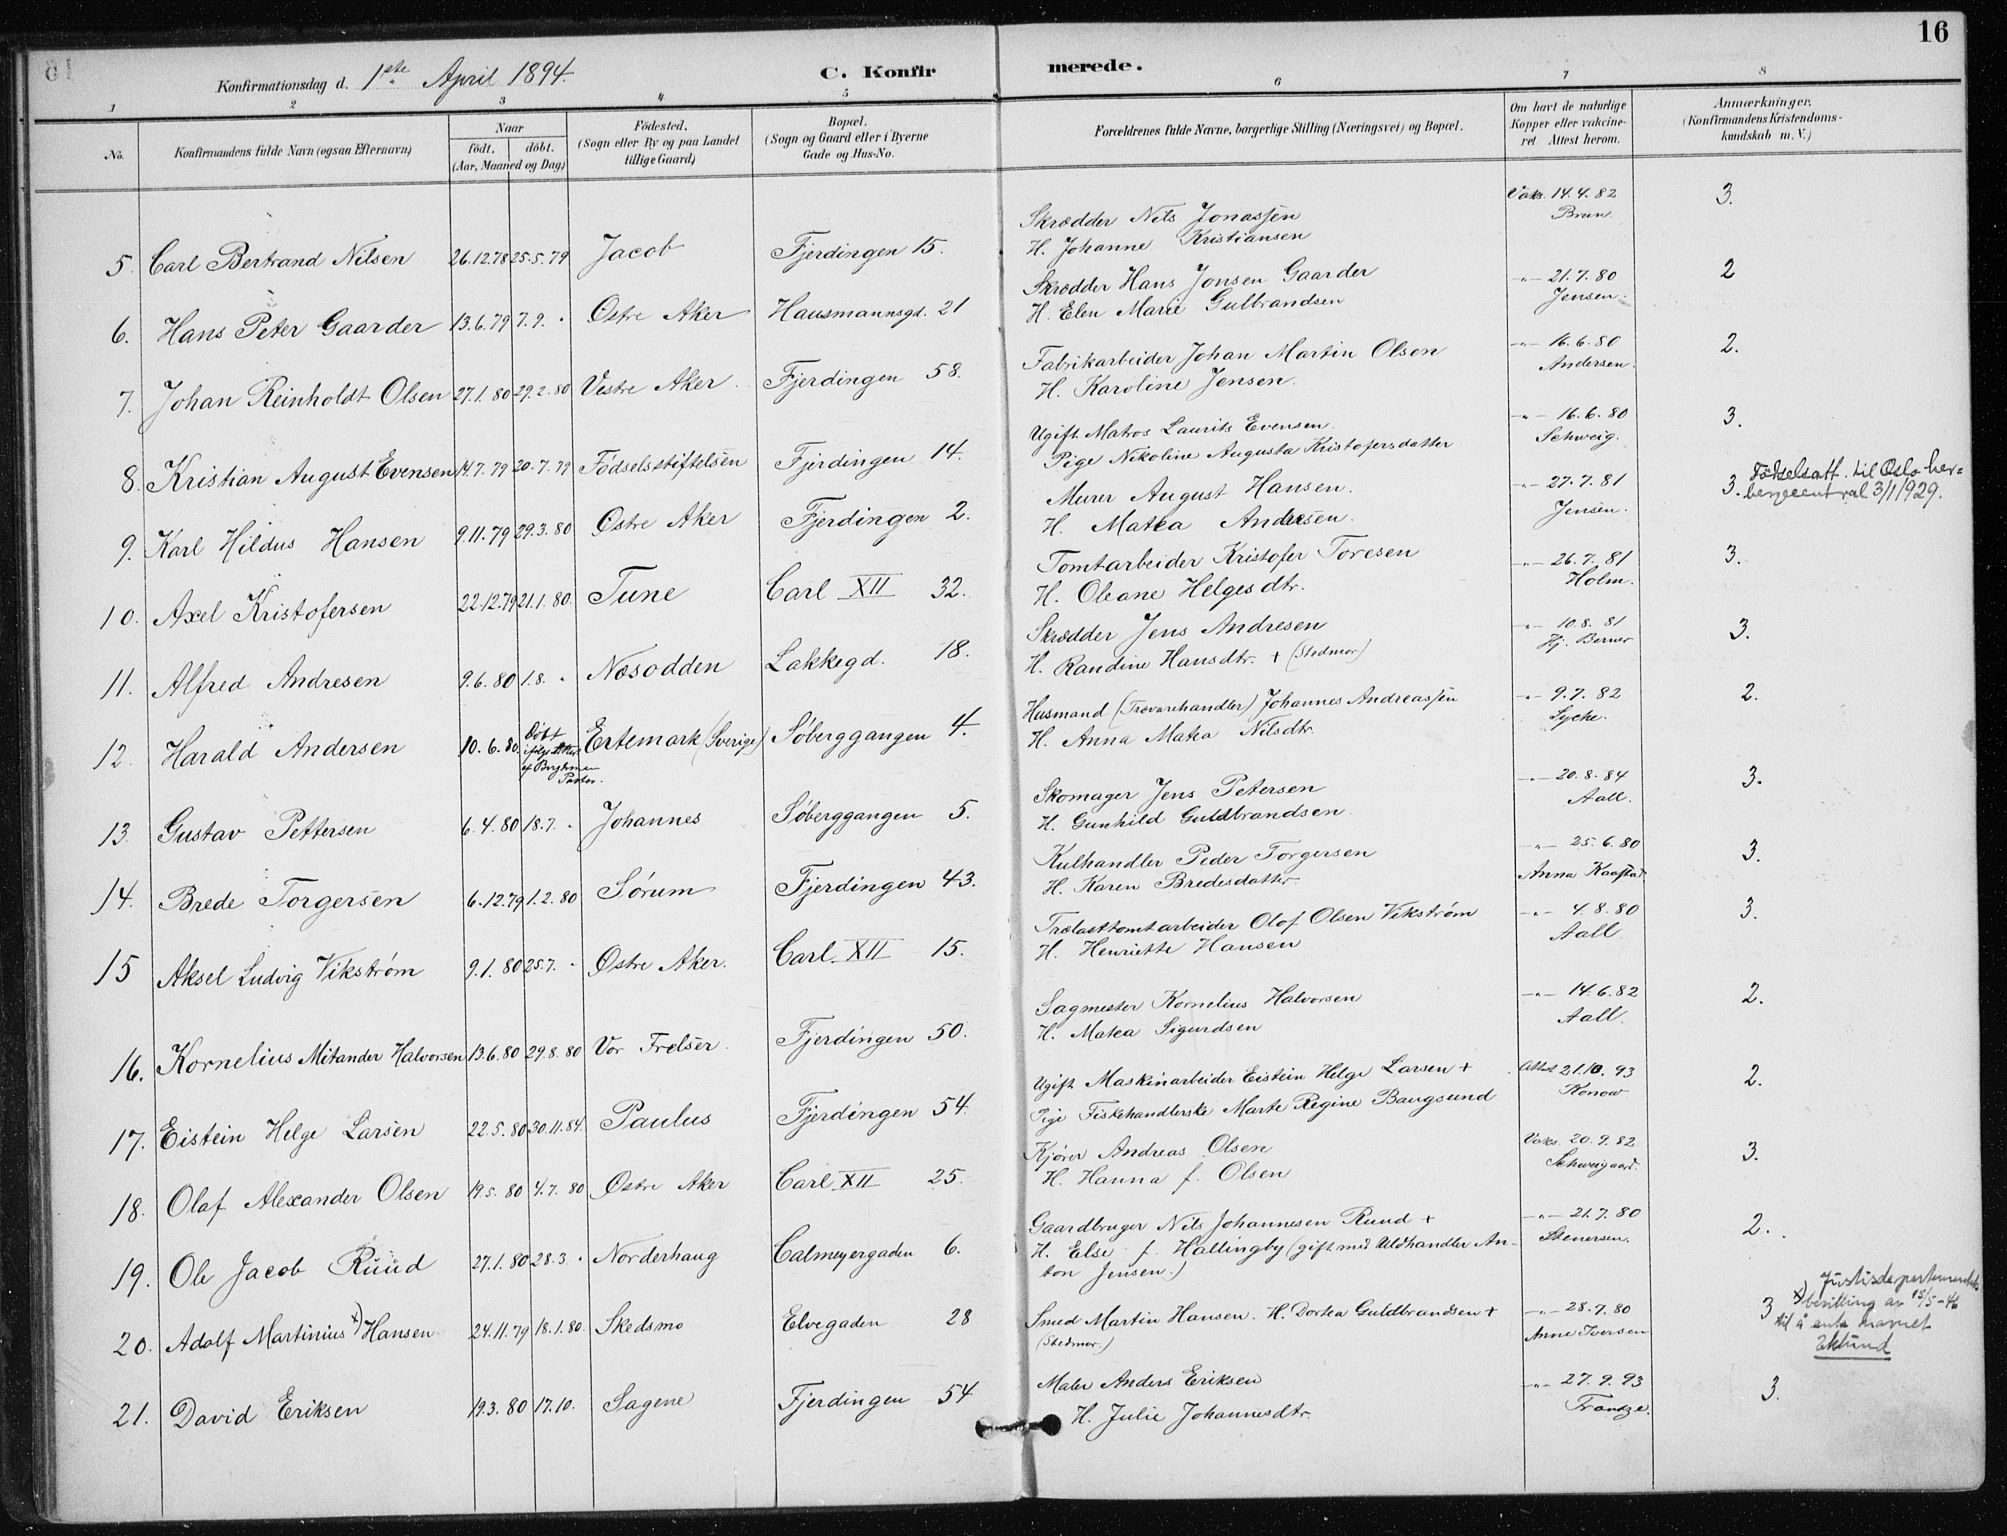 16
Konfirmationsdag d. 1ste April 1894.
C. Konfirmerede.
1 2 3 4 5 6 7 8
No.
Konfirmandens fulde Navn (ogsaa Efternavn)
Naar
födt. döbt.
(Aar, Maaned og Dag)
Födested.
(Sogn eller By og paa Landet
tillige Gaard)
Bopæl.
(Sogn og Gaard eller i Byerne
Gade og Hus-No.
Forældrenes fulde Navne, borgerlige Stilling (Næringsvei) og Bopæl.
Om havt de naturlige
Kopper eller vakcine-
ret. Attest herom.
Anmærkninger.
(Konfirmandens Kristendoms-
kundskab m. V.)
5. Carl Bertrand Nilsen 26.12.78 25.5.79 Jacob Fjerdingen 15.
Skrædder Nils Jonassen
H. Johanne Kristiansen
Vaks. 14.4.82
Brun.
3.
6. Hans Peter Gaarder 13.6.79 7.9. " Østre Aker Hausmannsgd. 21
Skrædder Hans Jonsen Gaarder
H. Elen Marie Gulbrandsen
-"- 21.7.80
Jensen.
2
7. Johan Reinholdt Olsen 27.1.80 29.2.80 Vestre Aker. Fjerdingen 58.
Fabrikarbeider Johan Martin Olsen
H. Karoline Jensen.
-"- 16.6.80
Andersen.
2.
8. Kristian August Evensen 14.7.79 20.7.79 Fødselsstiftelsen Fjerdingen 14.
Ugift Matros Laurits Evensen.
Pige Nikoline Augusta Kristofersdatter
-"- 16.6.80
Schweig.
3.
9. Karl Hildus Hansen 9.11.79 29.3.80 Østre Aker Fjerdingen 2.
Murer August Hansen.
H. Matea Andresen.
-"- 27.7.81
Jensen.
3. Fødselsatt. til Oslo her=
bergecentral 3/1 1929.
10. Axel Kristofersen 22.12.79 21.1.80. Tune Carl XII 32.
Tomtarbeider Kristofer Toresen
H. Oleane Helgesdtr.
-"- 26.7.81
Holm.
3.
11. Alfred Andresen 9.6.80 1.8. " Næsodden Lakkegd. 18.
Skrædder Jens Andresen
H. Randine Hansdtr. + (Stedmor)
-"- 10.8.81
Hj. Berner
3.
12. Harald Andersen 10.6.80. Døbt
ifølge Attest
af Berghman
Pastor.
Ertemark (Sverige) Søberggangen 4.
Husmand (Trævarehandler) Johannes Andreassen
H. Anna Matea Nilsdtr.
-"- 9.7.82
Lycke.
2.
13. Gustav Pettersen 6.4.80 18.7. " Johannes Søberggangen 5.
Skomager Jens Petersen
H. Gunhild Guldbrandsen
-"- 20.8.84
Aall.
3.
14. Brede Torgersen 6.12.79 1.2.80 Sørum Fjerdingen 43.
Kulhandler Peder Torgersen
H. Karen Bredesdatter.
-"- 25.6.80
Anna Kaafstad
3.
15 Aksel Ludvig Vikstrøm 9.1.80 25.7. " Østre Aker. Carl XII 15.
Trælasttomtarbeider Olof Olsen Vikstrøm
H. Henriette Hansen
-"- 4.8.80
Aall.
3.
16. Kornelius Mitander Halvorsen 13.6.80 29.8.80 Vor Frelser. Fjerdingen 50.
Sagmester Kornelius Halvorsen
H. Matea Sigurdsen
-"- 14.6.82
Aall.
2.
17. Eistein Helge Larsen 22.5.80 30.11.84. Paulus Fjerdingen 54.
Ugift Maskinarbeider Eistein Helge Larsen +
Pige Fiskehandlerske Marte Regine Baugsund
Attest 21.10.93
Konow
2.
18. Olaf Alexander Olsen 19.5.80 4.7.80 Østre Aker Carl XII 25.
Kjører Andreas Olsen
H. Hanna f. Olsen
Vaks. 20.9.82
Schweigaard.
3.
19. Ole Jacob Ruud 27.1.80 28.3. " Norderhaug Calmeyergaden 6.
Gaardbruger Nils Johannesen Ruud +
H. Else f. Hallingby (gift med Uldhandler An-
ton Jensen.)
-"- 21.7.80
Stenersen.
2.
20. Adolf Martinius x) Hansen 24.11.79 18.1.80. Skedsmo Elvegaden 28
Smed Martin Hansen. H. Dortea Guldbrandsen +
(Stedmor.)
-"- 28.7.80
Anne Iversen
3 x) Justisdepartementets
bevilling av 15/5-46
til å anta navnet
Eklund
21. David Eriksen 19.3.80 17.10. Sagene Fjerdingen 54
Maler Anders Eriksen
H. Julie Johannesdtr.
-"- 27.9.93
Frantze.
3.